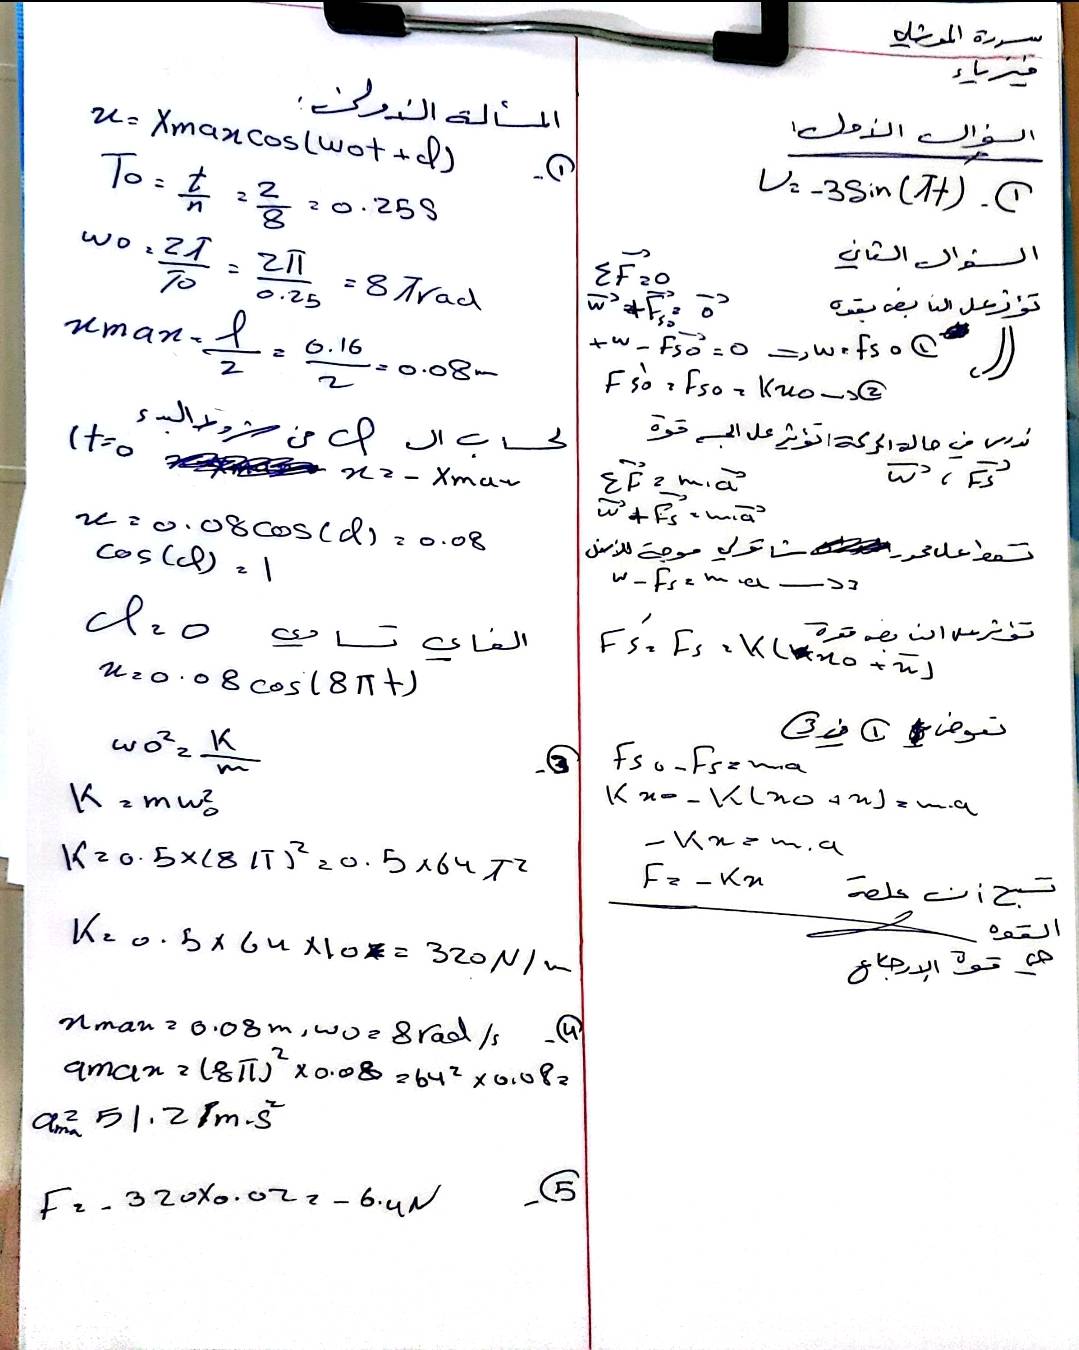 سدرة المرشلي
فيزياء
السؤال الأول:
① - V= -3Sin(πt)
السؤال الثاني
ΣF⃗=0
تؤثر على النابض بقوة
W⃗+F⃗s₀= 0⃗
+W-Fs₀=0 => W=Fs₀ ①
Fs₀' = Fs₀ = Kx₀ -> ②
ندرس في حالة الحركة تؤثر على الجسم قوة
W⃗ ، F⃗s
ΣF⃗=m.a⃗
W⃗+F⃗s=m.a⃗
نسقط على محور شاقولي موجه للأسفل
W-Fs=m.a -> 3
تؤثر على النابض قوة
Fs'= Fs = K(x₀+x̄)
نعوض ① في ③
Fs₀-Fs=m.a
Kx₀-K(x₀+x)=m.a
-Kx=m.a
F=-Kx
القوة
هي قوة الإرجاع
المسألة الأولى:
① - x= Xmaxcos(ω₀t+φ)
T₀=t/n=2/8=0.25S
ω₀=2π/T₀=2π/0.25=8πrad
xmax=l/2=0.16/2=0.08m
لحساب ال φ من شروط البدء (t=0
x=-Xmax
x=0.08cos(φ)=0.08
cos(φ)=1
φ=0 الفاي تساوي
x=0.08cos(8πt)
③ - ω₀²=K/m
K=mω₀²
K=0.5×(8π)²=0.5×64π²
K=0.5×64×10=320N/m
④ - xmax=0.08m,ω₀=8rad/s
amax=(8π)²×0.08=64²×0.08=
ama=51.2m.s²
⑤ - F=-320×0.02=-6.4N